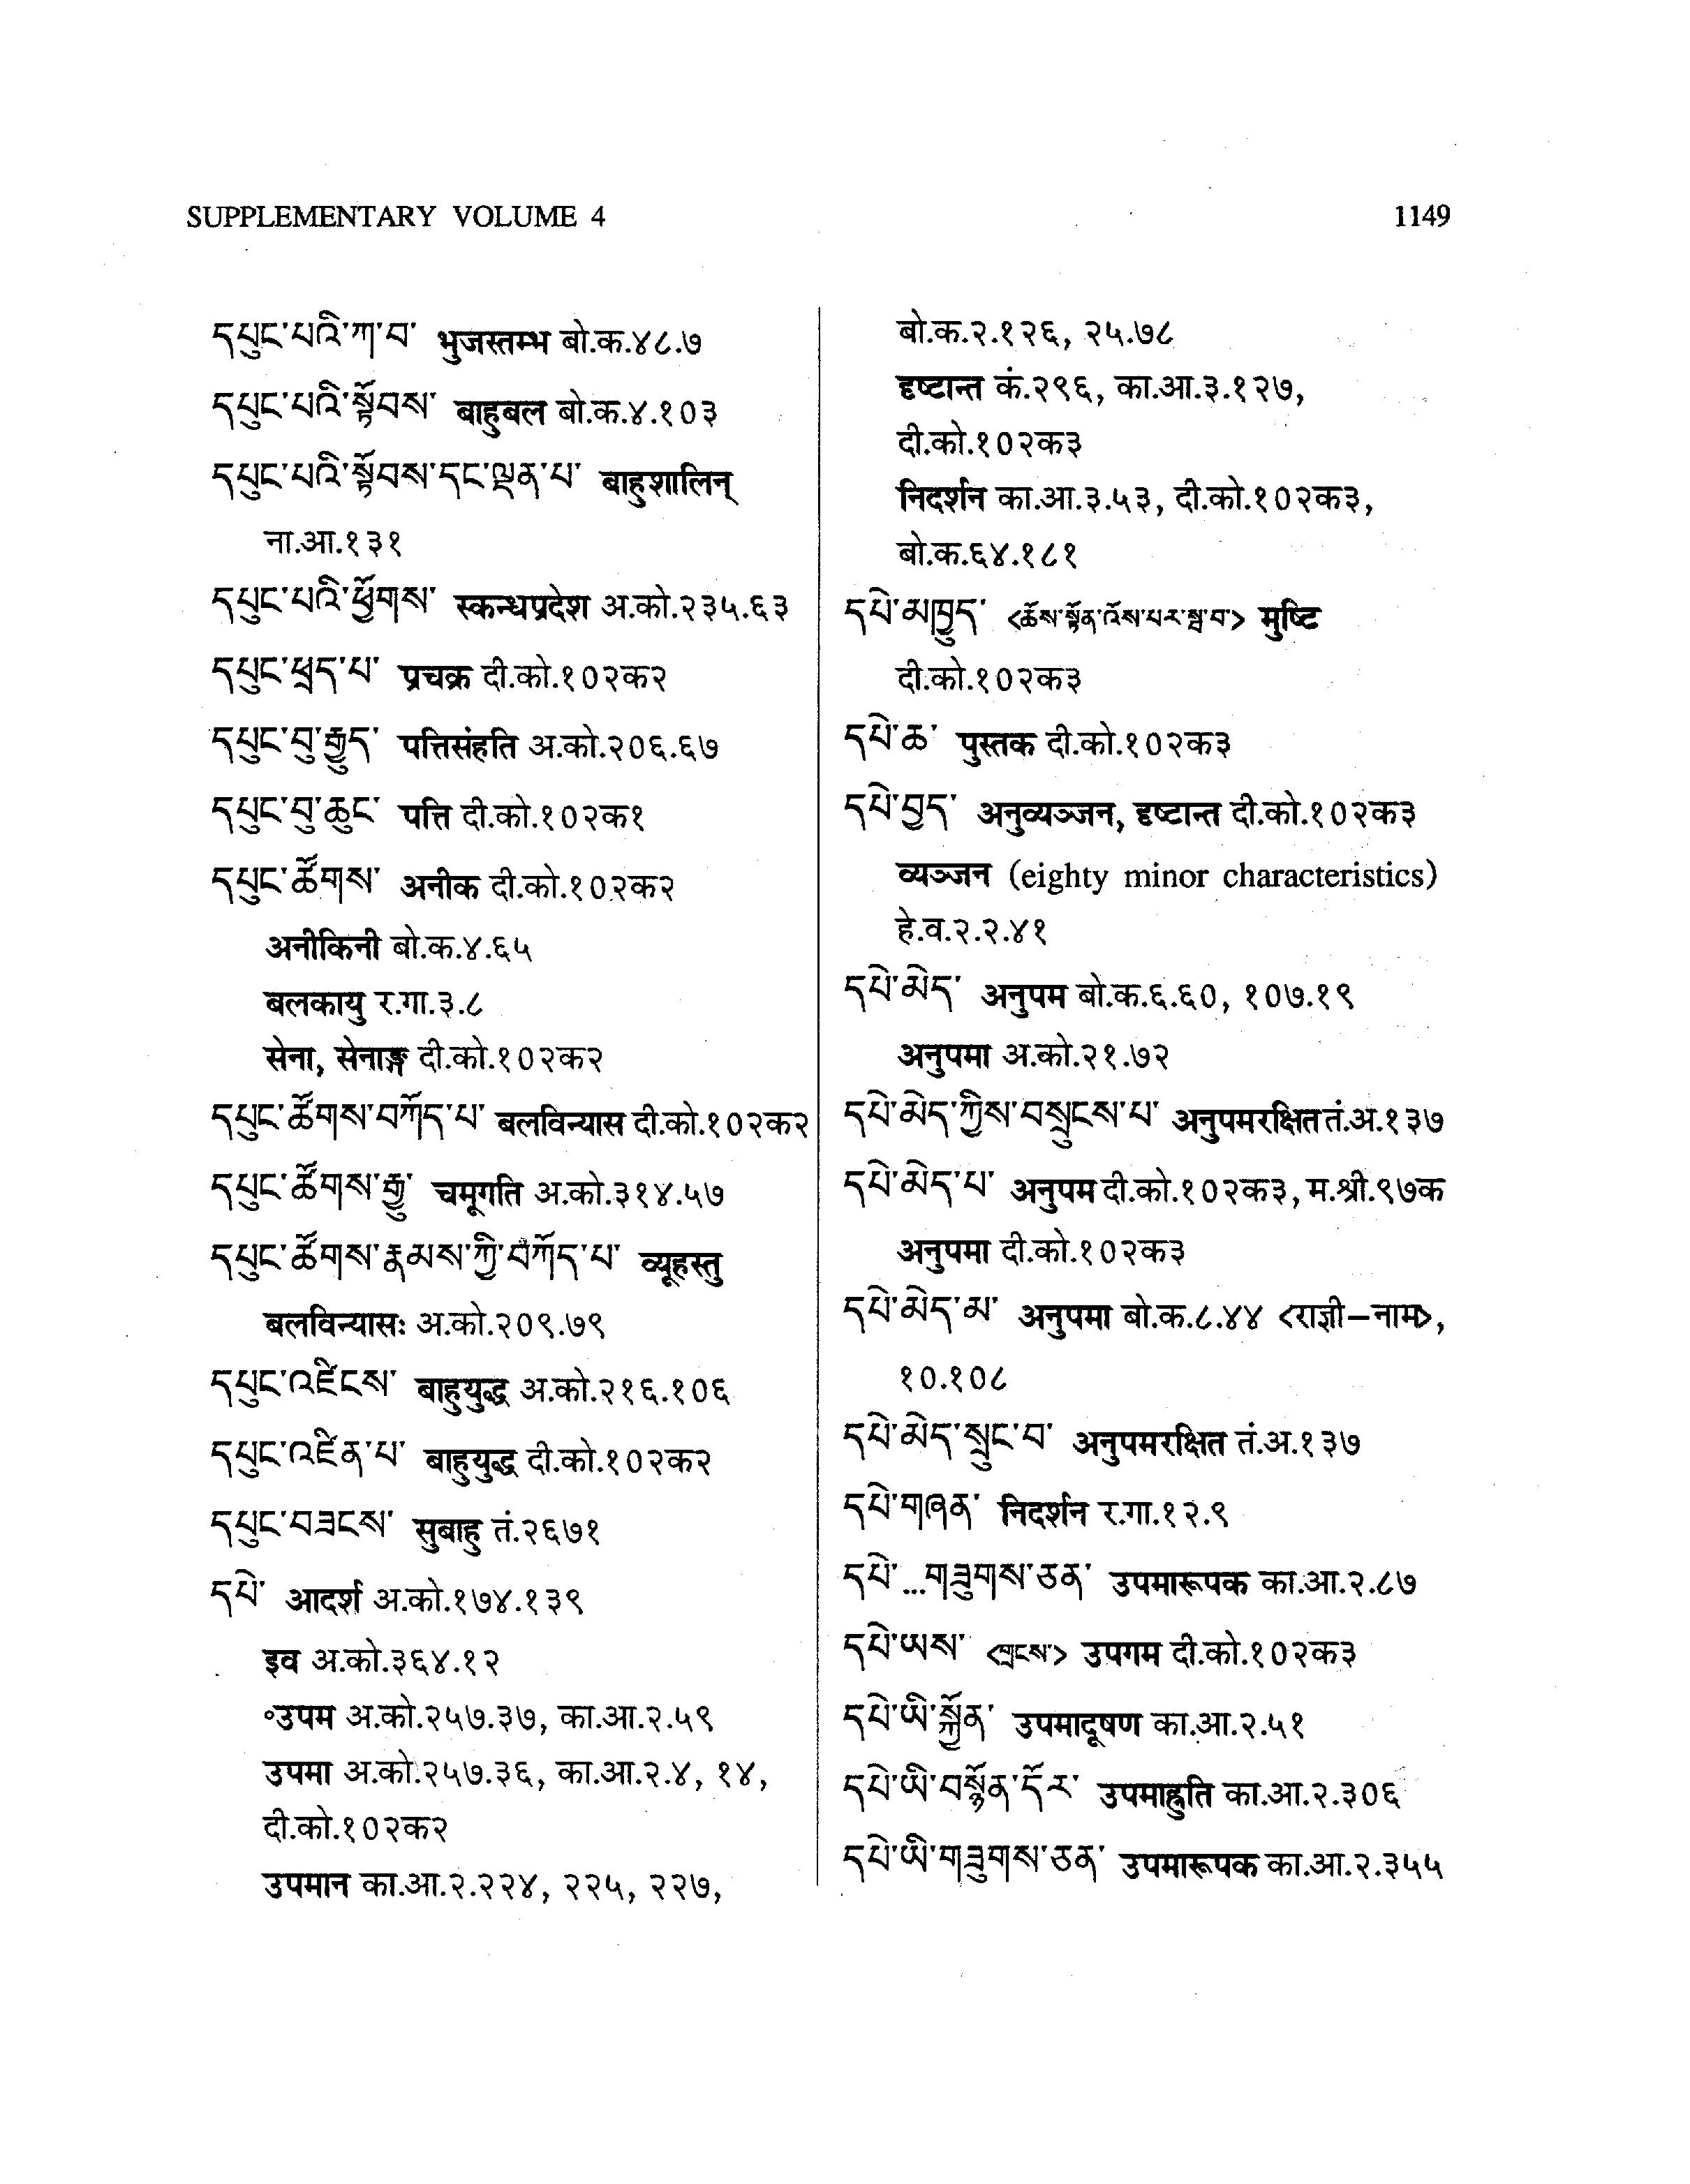 SUPPLEMENTARY VOLUME 4
1149
དཔུང་པའི་ཀ་བ་ भुजस्तम्भ बो.क.४८.७
དཔུང་པའི་སྟོབས་ बाहुबल बो.क.४.१०३
དཔུང་པའི་སྟོབས་དང་ལྡན་པ་ बाहुशालिन्
ना.आ.१३१
དཔུང་པའི་ཕྱོགས་ स्कन्धप्रदेश अ.को.२३५.६३
དཔུང་ཕྲད་པ་ प्रचक्र दी.को.१०२क२
དཔུང་བུ་རྒྱུད་ पत्तिसंहति अ.को.२०६.६७
དཔུང་བུ་ཆུང་ पत्ति दी.को.१०२क१
དཔུང་ཚོགས་ अनीक दी.को.१०२क२
अनीकिनी बो.क.४.६५
बलकायु र.गा.३.८
सेना, सेनाङ्ग दी.को.१०२क२
དཔུང་ཚོགས་བཀོད་པ་ बलविन्यास दी.को.१०२क२
དཔུང་ཚོགས་རྒྱུ་ चमूगति अ.को.३१४.५७
དཔུང་ཚོགས་རྣམས་ཀྱི་བཀོད་པ་ व्यूहस्तु
बलविन्यासः अ.को.२०९.७९
དཔུང་འཛིངས་ बाहुयुद्ध अ.को.२१६.१०६
དཔུང་འཛིན་པ་ बाहुयुद्ध दी.को.१०२क२
དཔུང་བཟངས་ सुबाहु तं.२६७१
དཔེ་ आदर्श अ.को.१७४.१३९
इव अ.को.३६४.१२
॰उपम अ.को.२५७.३७, का.आ.२.५९
उपमा अ.को.२५७.३६, का.आ.२.४, १४,
दी.को.१०२क२
उपमान का.आ.२.२२४, २२५, २२७,
बो.क.२.१२६, २५.७८
दृष्टान्त कं.२९६, का.आ.३.१२७,
दी.को.१०२क३
निदर्शन का.आ.३.५३, दी.को.१०२क३,
बो.क.६४.१८१
དཔེ་མཁྱུད་ <ཆོས་སྟོན་འོས་པར་སྨྲ་བ་> मुष्टि
दी.को.१०२क३
དཔེ་ཆ་ पुस्तक दी.को.१०२क३
དཔེ་བྱད་ अनुव्यञ्जन, दृष्टान्त दी.को.१०२क३
व्यञ्जन (eighty minor characteristics)
हे.व.२.२.४१
དཔེ་མེད་ अनुपम बो.क.६.६०, १०७.१९
अनुपमा अ.को.२१.७२
དཔེ་མེད་ཀྱིས་བསྲུངས་པ་ अनुपमरक्षित तं.अ.१३७
དཔེ་མེད་པ་ अनुपम दी.को.१०२क३, म.श्री.९७क
अनुपमा दी.को.१०२क३
དཔེ་མེད་མ་ अनुपमा बो.क.८.४४ <राज्ञी–नाम>,
१०.१०८
དཔེ་མེད་སྲུང་བ་ अनुपमरक्षित तं.अ.१३७
དཔེ་གཞན་ निदर्शन र.गा.१२.९
དཔེ་...གཟུགས་ཅན་ उपमारूपक का.आ.२.८७
དཔེ་ཡས་ <གྲངས་> उपगम दी.को.१०२क३
དཔེ་ཡི་སྐྱོན་ उपमादूषण का.आ.२.५१
དཔེ་ཡི་བསྙོན་དོར་ उपमाह्नुति का.आ.२.३०६
དཔེ་ཡི་གཟུགས་ཅན་ उपमारूपक का.आ.२.३५५